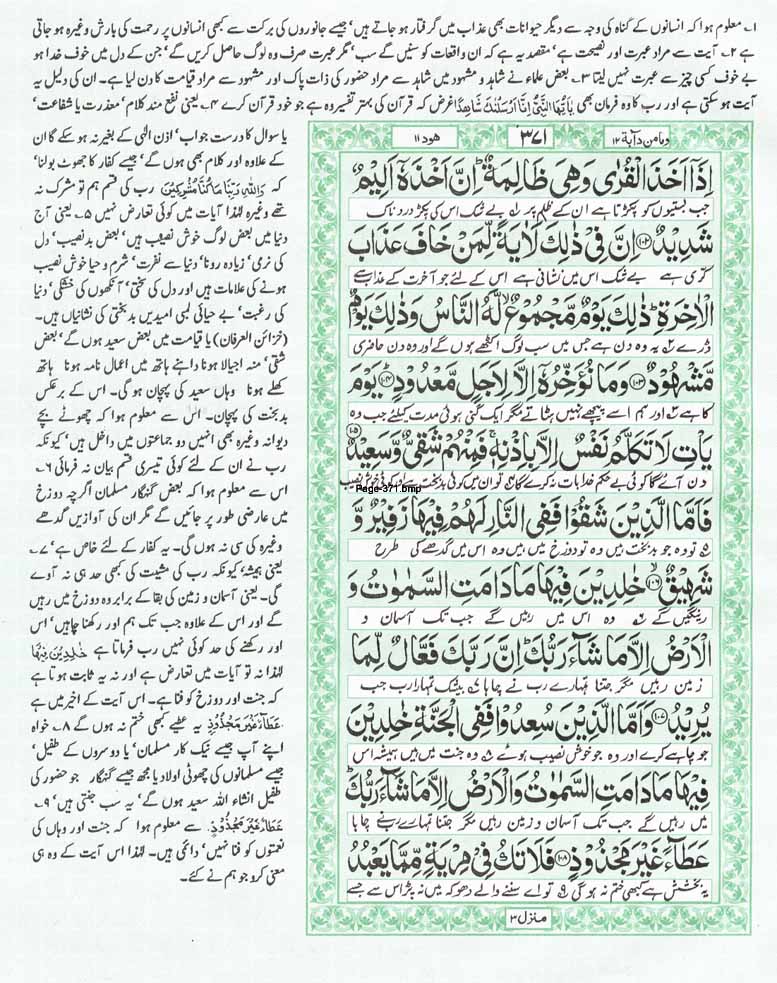 ۱۔ معلوم ہوا کہ انسانوں کے گناہ کی وجہ سے دیگر حیوانات بھی عذاب میں گرفتار ہو جاتے ہیں‘ جیسے جانوروں کی برکت سے کبھی انسانوں پر رحمت کی بارش وغیرہ ہو جاتی
ہے ۲۔ آیت سے مراد عبرت اور نصیحت ہے‘ مقصد یہ ہے کہ ان واقعات کو سنیں گے سب‘ مگر عبرت صرف وہ لوگ حاصل کریں گے‘ جن کے دل میں خوف خدا ہو
بے خوف کسی چیز سے عبرت نہیں لیتا ۳۔ بعض علماء نے شاہد و مشہود میں شاہد سے مراد حضور کی ذات پاک اور مشہود سے مراد قیامت کا دن لیا ہے۔ ان کی دلیل یہ
آیت ہو سکتی ہے اور رب کا وہ فرمان بھی یٰاَیُّهَا النَّبِیُّ اِنَّا اَرْسَلْنٰكَ شَاهِدًا غرض کہ قرآن کی بہتر تفسیر وہ ہے جو خود قرآن کرے ۴۔ یعنی نفع مند کلام‘ معذرت یا شفاعت‘
یا سوال کا درست جواب‘ اذن الٰہی کے بغیر نہ ہو سکے گا ان
کے علاوہ اور کلام بھی ہوں گے‘ جیسے کفار کا جھوٹ بولنا‘
کہ وَاللّٰهِ رَبِّنَا مَا كُنَّا مُشْرِكِیْنَ رب کی قسم ہم تو مشرک نہ
تھے وغیرہ لہٰذا آیات میں کوئی تعارض نہیں ۵۔ یعنی آج
دنیا میں بعض لوگ خوش نصیب ہیں‘ بعض بدنصیب‘ دل
کی نرمی‘ زیادہ رونا‘ دنیا سے نفرت‘ شرم و حیا خوش نصیب
ہونے کی علامات ہیں اور دل کی سختی‘ آنکھوں کی خشکی‘ دنیا
کی رغبت‘ بے حیائی لمبی امیدیں بدبختی کی نشانیاں ہیں۔
(خزائن العرفان) یا قیامت میں بعض سعید ہوں گے‘ بعض
شقی‘ منہ اجیالا ہونا داہنے ہاتھ میں اعمال نامہ ہونا ہاتھ
کھلے ہونا وہاں سعید کی پہچان ہو گی۔ اس کے برعکس
بدبخت کی پہچان۔ اس سے معلوم ہوا کہ چھوٹے بچے
دیوانہ وغیرہ بھی انہیں دو جماعتوں میں داخل ہیں‘ کیونکہ
رب نے ان کے لئے کوئی تیسری قسم بیان نہ فرمائی ۶۔
اس سے معلوم ہوا کہ بعض گنہگار مسلمان اگرچہ دوزخ
میں عارضی طور پر جائیں گے مگر ان کی آوازیں گدھے
وغیرہ کی سی نہ ہوں گی۔ یہ کفار کے لئے خاص ہے‘ ۷۔
یعنی ہمیشہ‘ کیونکہ رب کی مشیت کی کبھی حد ہی نہ آوے
گی۔ یعنی آسمان و زمین کی بقا کے برابر وہ دوزخ میں رہیں
گے اور اس کے علاوہ جب تک ہم اور رکھنا چاہیں‘ اس
اور رکھنے کی حد کوئی نہیں رب فرماتا ہے خٰلِدِیْنَ فِیْهَا
لہٰذا نہ تو آیات میں تعارض ہے اور نہ یہ ثابت ہوتا ہے
کہ جنت اور دوزخ کو فنا ہے۔ اس آیت کے اخیر میں ہے
عَطَآءً غَیْرَ مَجْذُوْذٍ یہ عطیے کبھی ختم نہ ہوں گے ۸۔ خواہ
اپنے آپ جیسے نیک کار مسلمان‘ یا دوسروں کے طفیل‘
جیسے مسلمانوں کی چھوٹی اولاد یا مجھ جیسے گنہگار جو حضور کی
طفیل انشاء اللہ سعید ہوں گے‘ یہ سب جنتی ہیں‘ ۹۔
عَطَآءً غَیْرَ مَجْذُوْذٍ سے معلوم ہوا کہ جنت اور وہاں کی
نعمتوں کو فنا نہیں‘ دائمی ہیں۔ لہٰذا اس آیت کے وہ ہی
معنی کرو جو ہم نے کئے۔
ومامن دآبة ۱۲ ۳۷۱ ھود ۱۱
اِذَآ اَخَذَ الْقُرٰی وَهِیَ ظَالِمَةٌ ؕ اِنَّ اَخْذَهٗۤ اَلِیْمٌ
جب بستیوں کو پکڑتا ہے ان کے ظلم پر ۱ بے شک اس کی پکڑ دردناک
شَدِیْدٌ ۝۱۰۲ اِنَّ فِیْ ذٰلِكَ لَاٰیَةً لِّمَنْ خَافَ عَذَابَ
کرّی ہے بے شک اس میں نشانی ہے اس کے لئے جو آخرت کے عذاب سے
الْاٰخِرَةِ ؕ ذٰلِكَ یَوْمٌ مَّجْمُوْعٌ ۙ لَّهُ النَّاسُ وَذٰلِكَ یَوْمٌ
ڈرے ۲ یہ وہ دن ہے جس میں سب لوگ اکٹھے ہوں گے اور وہ دن حاضری
مَّشْهُوْدٌ ۝۱۰۳ وَمَا نُؤَخِّرُهٗۤ اِلَّا لِاَجَلٍ مَّعْدُوْدٍ ۝۱۰۴ یَوْمَ
کا ہے ۳ اور ہم اسے پیچھے نہیں ہٹاتے مگر ایک گنی ہوئی مدت کیلئے جب وہ
یَاْتِ لَا تَكَلَّمُ نَفْسٌ اِلَّا بِاِذْنِهٖ ۚ فَمِنْهُمْ شَقِیٌّ وَّسَعِیْدٌ ۝۱۰۵
دن آئے گا کوئی بے حکم خدا بات نہ کرے گا ۴ تو ان میں کوئی بدبخت ہے اور کوئی خوش نصیب
Page-371.bmp
فَاَمَّا الَّذِیْنَ شَقُوْا فَفِی النَّارِ لَهُمْ فِیْهَا زَفِیْرٌ وَّ
۵ تو وہ جو بدبخت ہیں وہ تو دوزخ میں ہیں وہ اس میں گدھے کی طرح
شَهِیْقٌ ۝۱۰۶ خٰلِدِیْنَ فِیْهَا مَا دَامَتِ السَّمٰوٰتُ وَ
رینگیں گے ۶ وہ اس میں رہیں گے جب تک آسمان و
الْاَرْضُ اِلَّا مَا شَآءَ رَبُّكَ ؕ اِنَّ رَبَّكَ فَعَّالٌ لِّمَا
زمین رہیں مگر جتنا تمہارے رب نے چاہا ۷ بیشک تمہارا رب جب
یُرِیْدُ ۝۱۰۷ وَاَمَّا الَّذِیْنَ سُعِدُوْا فَفِی الْجَنَّةِ خٰلِدِیْنَ
جو چاہے کرے اور وہ جو خوش نصیب ہوئے ۸ وہ جنت میں ہیں ہمیشہ اس
فِیْهَا مَا دَامَتِ السَّمٰوٰتُ وَالْاَرْضُ اِلَّا مَا شَآءَ رَبُّكَ ؕ
میں رہیں گے جب تک آسمان و زمین رہیں مگر جتنا تمہارے رب نے چاہا
عَطَآءً غَیْرَ مَجْذُوْذٍ ۝۱۰۸ فَلَا تَكُ فِیْ مِرْیَةٍ مِّمَّا یَعْبُدُ
یہ بخشش ہے کبھی ختم نہ ہو گی ۹ تو اے سننے والے دھوکہ میں نہ پڑ اس سے جسے
منزل ۳